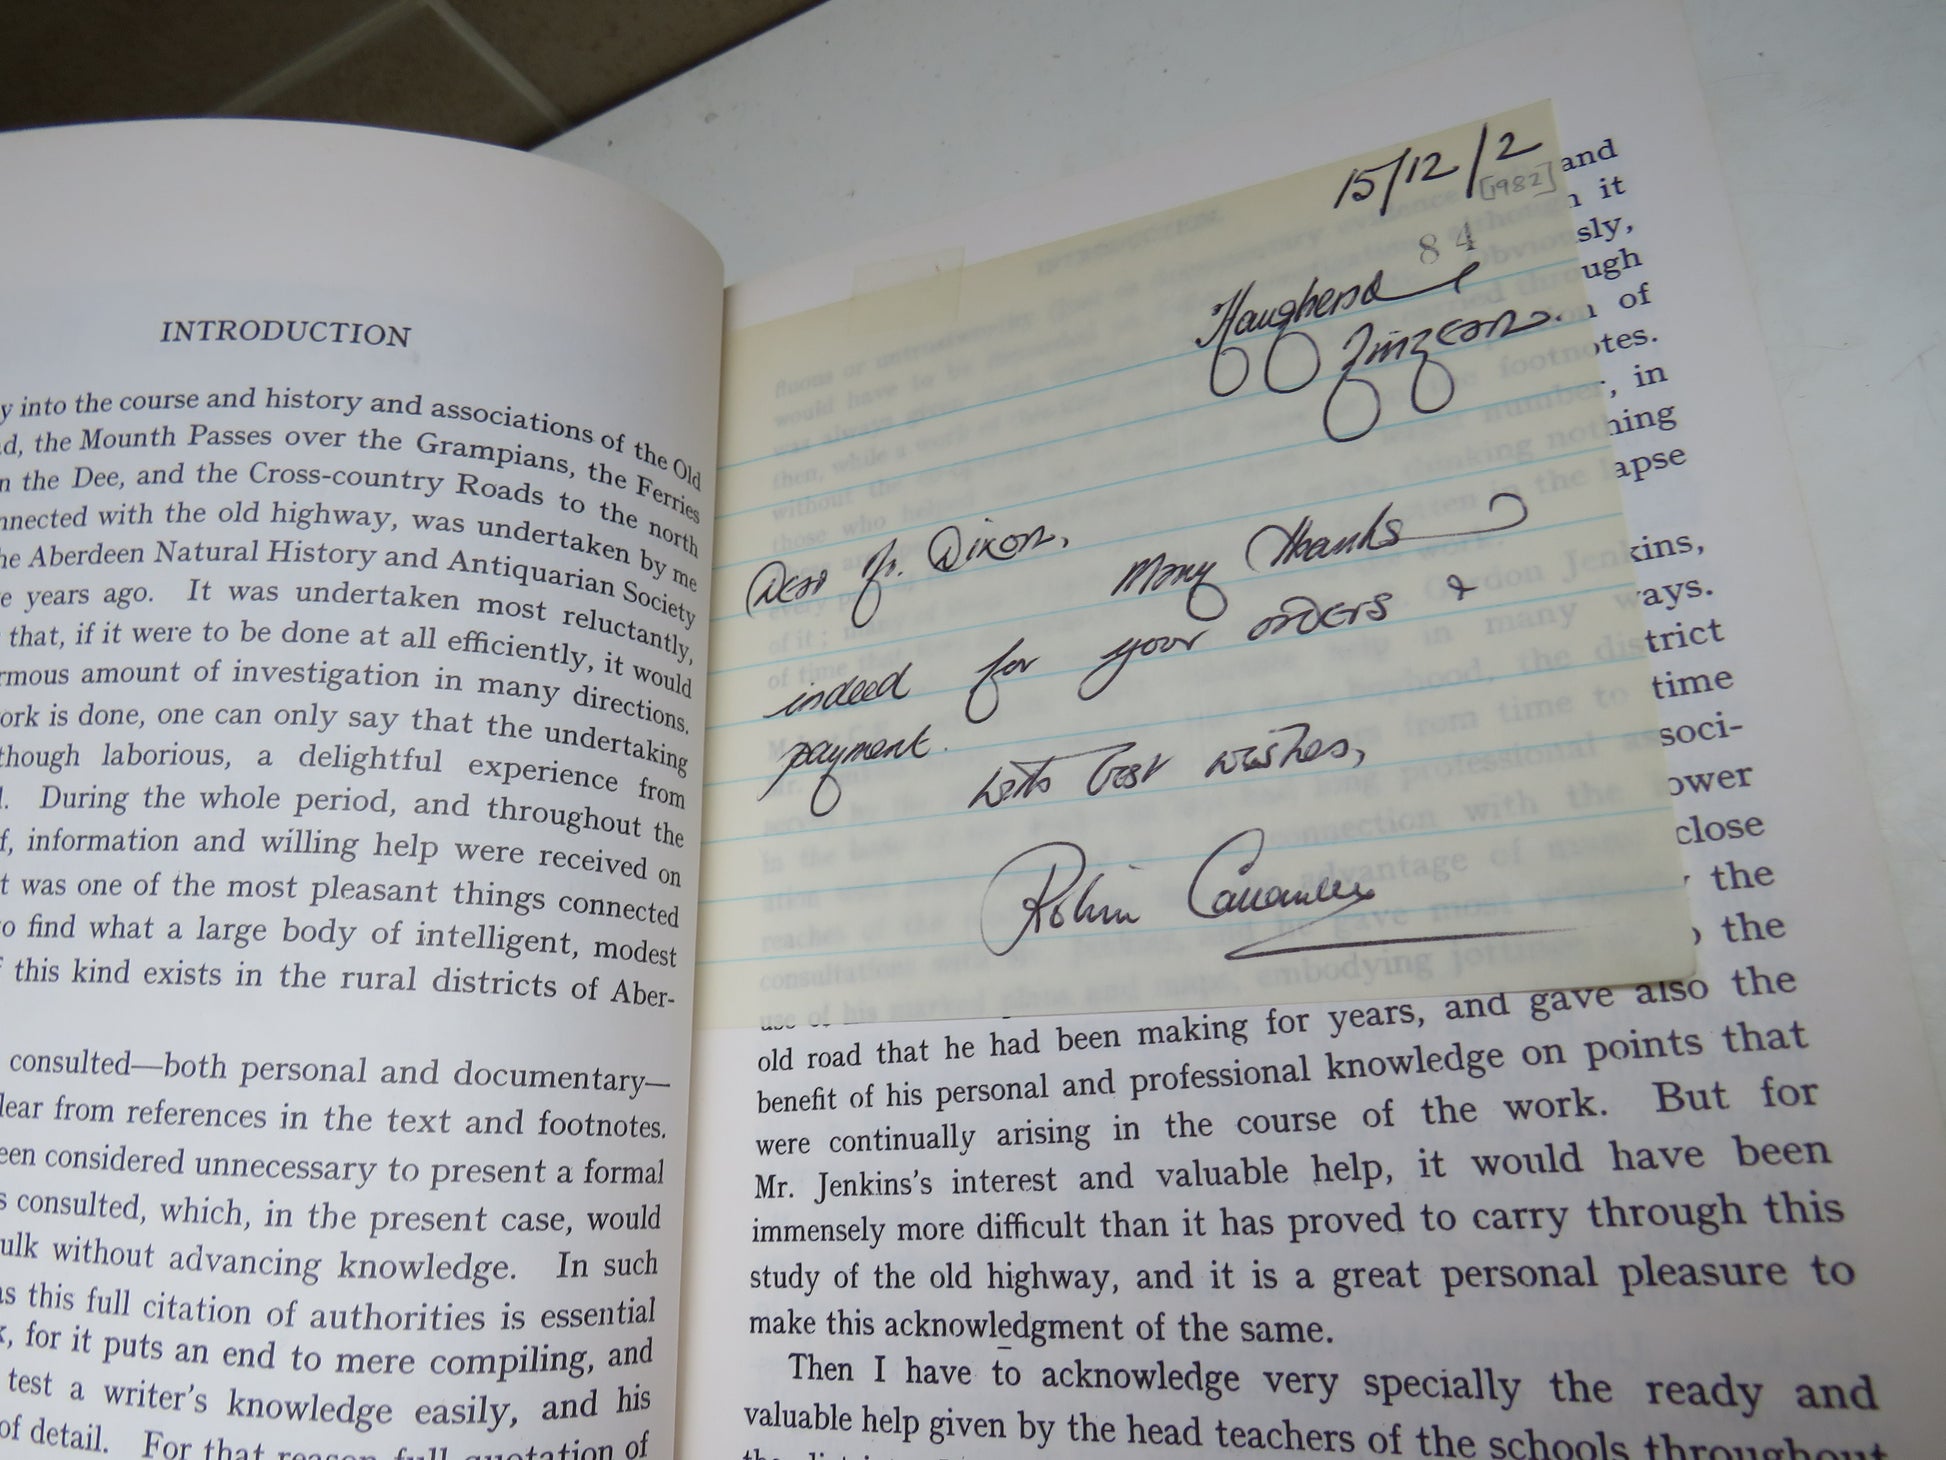 INTRODUCTION
y into the course and history and associations of the Old
d, the Mounth Passes over the Grampians, the Ferries
n the Dee, and the Cross-country Roads to the north
nnected with the old highway, was undertaken by me
he Aberdeen Natural History and Antiquarian Society
e years ago. It was undertaken most reluctantly,
that, if it were to be done at all efficiently, it would
rmous amount of investigation in many directions.
ork is done, one can only say that the undertaking
though laborious, a delightful experience from
l. During the whole period, and throughout the
f, information and willing help were received on
t was one of the most pleasant things connected
o find what a large body of intelligent, modest
f this kind exists in the rural districts of Aber-
consulted—both personal and documentary—
lear from references in the text and footnotes.
een considered unnecessary to present a formal
s consulted, which, in the present case, would
ulk without advancing knowledge. In such
as this full citation of authorities is essential
k, for it puts an end to mere compiling, and
test a writer's knowledge easily, and his
of detail. For that reason full quotation of
15/12/2
[1982]
84
Haughend
Finzean.
Dear Mr. Dixon,
Many thanks
indeed for your orders &
payment.
With best wishes,
Robin
and
it
sly,
ugh
of
otes.
, in
hing
apse
kins,
ways.
trict
time
soci-
ower
close
the
the
old road that he had been making for years, and gave also the
benefit of his personal and professional knowledge on points that
were continually arising in the course of the work. But for
Mr. Jenkins's interest and valuable help, it would have been
immensely more difficult than it has proved to carry through this
study of the old highway, and it is a great personal pleasure to
make this acknowledgment of the same.
Then I have to acknowledge very specially the ready and
valuable help given by the head teachers of the schools throughout